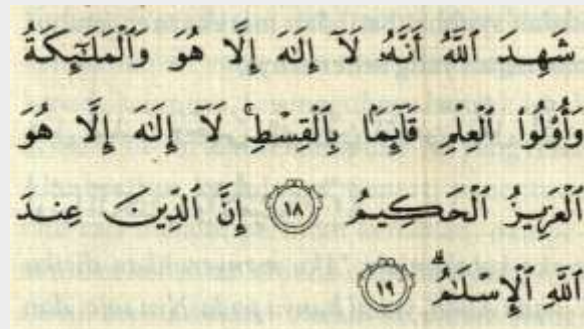 شَهِدَ ٱللَّهُ أَنَّهُۥ لَآ إِلَٰهَ إِلَّا هُوَ وَٱلْمَلَٰٓئِكَةُ
وَأُو۟لُوا۟ ٱلْعِلْمِ قَآئِمًۢا بِٱلْقِسْطِ ۚ لَآ إِلَٰهَ إِلَّا هُوَ
ٱلْعَزِيزُ ٱلْحَكِيمُ ١٨ إِنَّ ٱلدِّينَ عِندَ
ٱللَّهِ ٱلْإِسْلَٰمُ ۗ ١٩